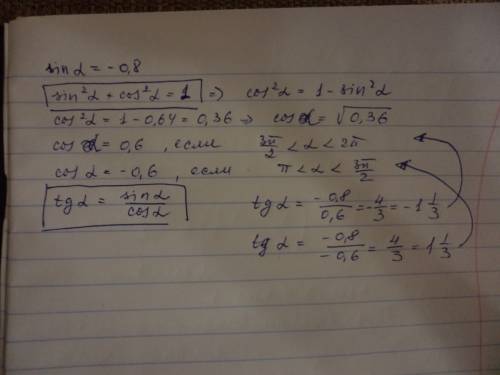 sin α = -0,8
sin²α + cos²α = 1 => cos²α = 1 - sin²α
cos²α = 1 - 0,64 = 0,36 => cos α = √0,36
cos α = 0,6 , если 3π/2 < α < 2π
cos α = -0,6 , если π < α < 3π/2
tg α = sin α/cos α
tg α = -0,8/0,6 = -4/3 = -1 1/3
tg α = -0,8/-0,6 = 4/3 = 1 1/3